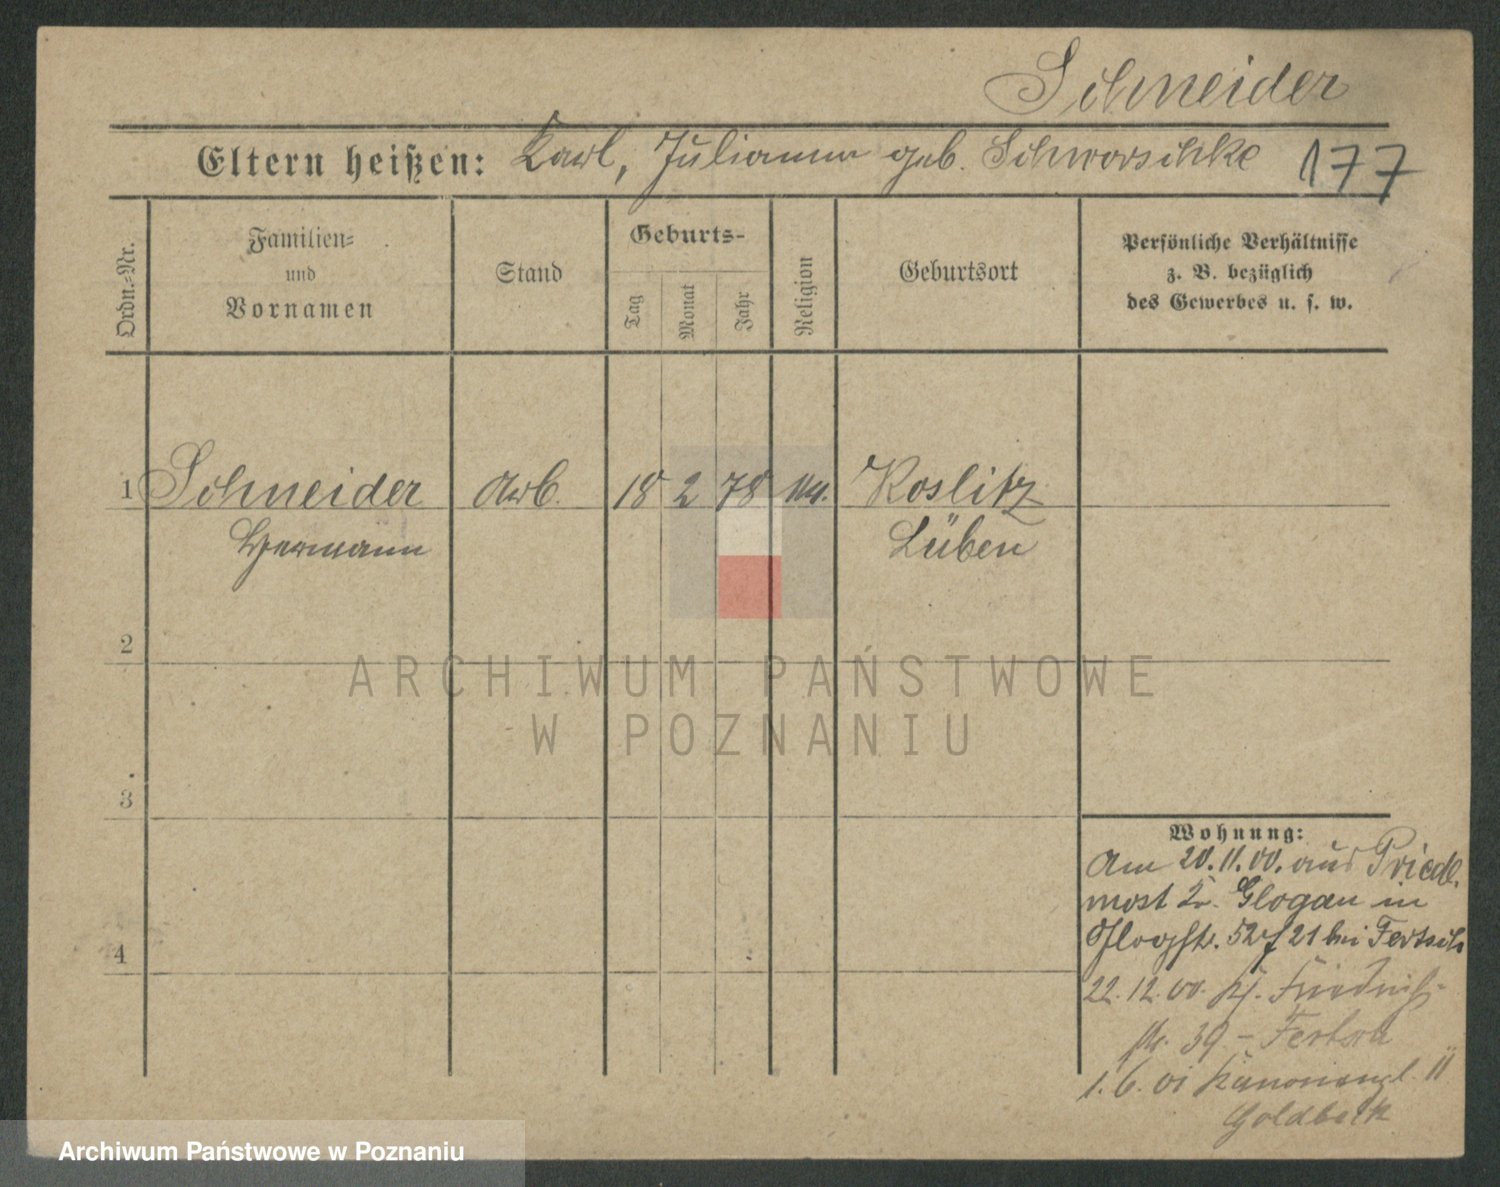 Schneider
Eltern heißen: Karl, Julianna geb. Schworschke 177
Ordn.-Nr.
Familien-
und
Vornamen
Stand
Geburts-
Tag
Monat
Jahr
Religion
Geburtsort
Persönliche Verhältnisse
z. B. bezüglich
des Gewerbes u. s. w.
1 Schneider Arb. 18 2 78 Koslitz
Hermann Lüben
2
ARCHIWUM PAŃSTWOWE
W POZNANIU
3
Wohnung:
Am 20.11.00. aus Priede-
most Kr. Glogau in
52 21 bei Fertsch
4
22.12.00. Friedrich-
str. 39 - Fertsch
1.6.01 Kanonenpl. 11
Goldbeck
Archiwum Państwowe w Poznaniu